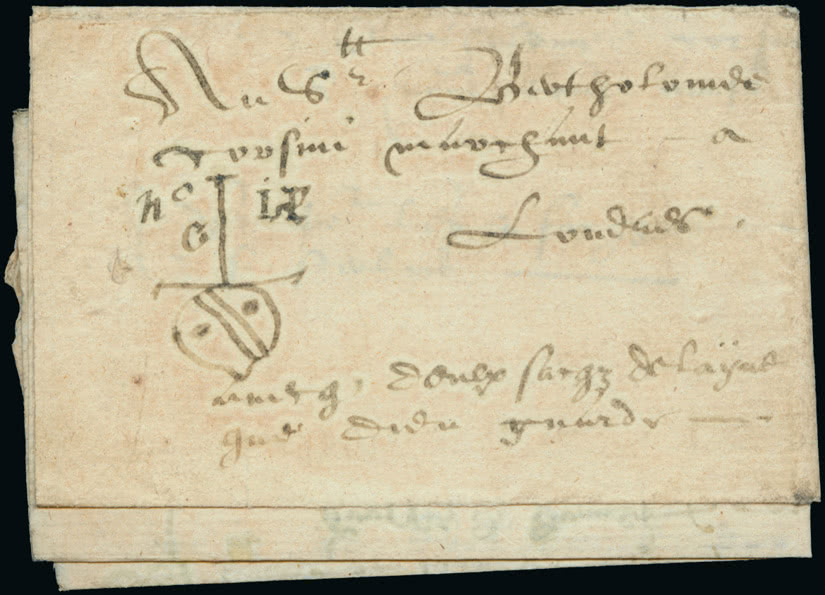 Au Sr Bartholomde
Corsini marchant a
Londres
No
G
IP
avecq deulx sacqz de layne
que dieu guarde